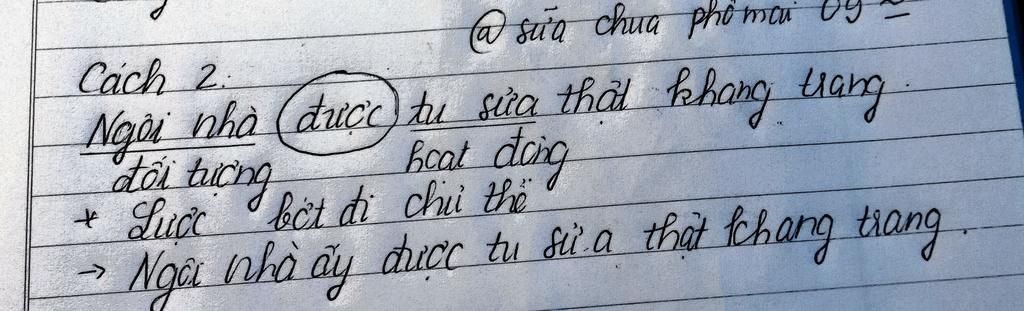 @ sữa chua phô mai 09
Cách 2:
Ngôi nhà được tu sửa thật khang trang.
đối tượng hoạt động
* Lược bớt đi chủ thể
→ Ngôi nhà ấy được tu sửa thật khang trang.